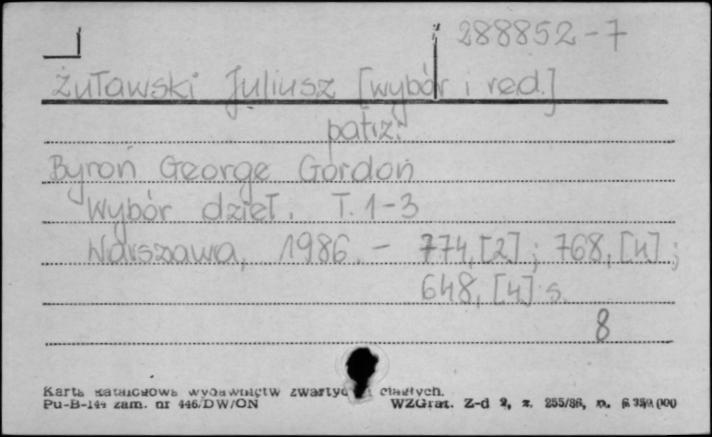 288852-7
Żuławski Juliusz [wybór i red.]
patrz:
Byron George Gordon
Wybór dzieł. T. 1-3
Warszawa, 1986. - 774, [2] ; 768, [4] ;
648, [4] s.
8
Karta katalogowa wydawnictw zwartych ciągłych.
Pu-B-144 zam. nr 446/DW/ON WZGraf. Z-d 2, z. 255/86, n.